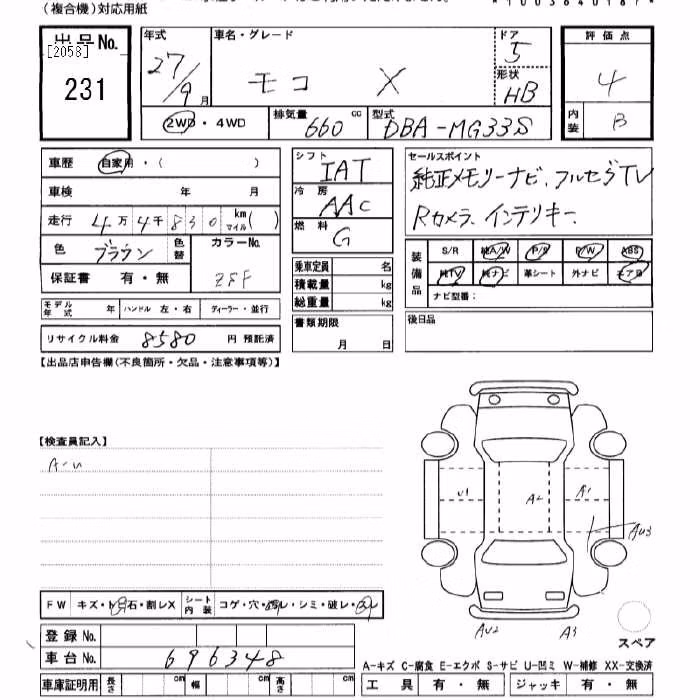 (複合機)対応用紙
出品No.
[2058]
231
年式
27/9月
車名・グレード
モコ X
ドア
5
形状
HB
評価点
4
2WD・4WD
排気量
660 cc
型式
DBA-MG33S
内装
B
車歴 自家用・( )
車検 年 月
走行 4万4千830 km マイル( )
色 ブラウン 色替
カラーNo.
ZSF
保証書 有・無
モデル年式 年 ハンドル 左・右 ディーラー・並行
リサイクル料金 8580 円 預託済
シフト
IAT
冷房
AAC
燃料
G
乗車定員 名
積載量 kg
総重量 kg
書類期限
月 日
セールスポイント
純正メモリーナビ、フルセグTV
Rカメラ、インテリキー、
装備品
S/R 純A/W P/S P/W ABS
純TV 純ナビ 革シート 外ナビ エアB
ナビ型番:
後日品
【出品店申告欄(不良箇所・欠品・注意事項等)】
【検査員記入】
A・U
U1
A2
A1
AU3
AU2
A3
スペア
FW キズ・ト石・割レX シート内装 コゲ・穴・ レ・シミ・破レ・
登録No.
車台No. 696348
車庫証明用 長さ cm 幅 cm 高さ cm
A-キズ C-腐食 E-エクボ S-サビ U-凹ミ W-補修 XX-交換済
工具 有・無 ジャッキ 有・無